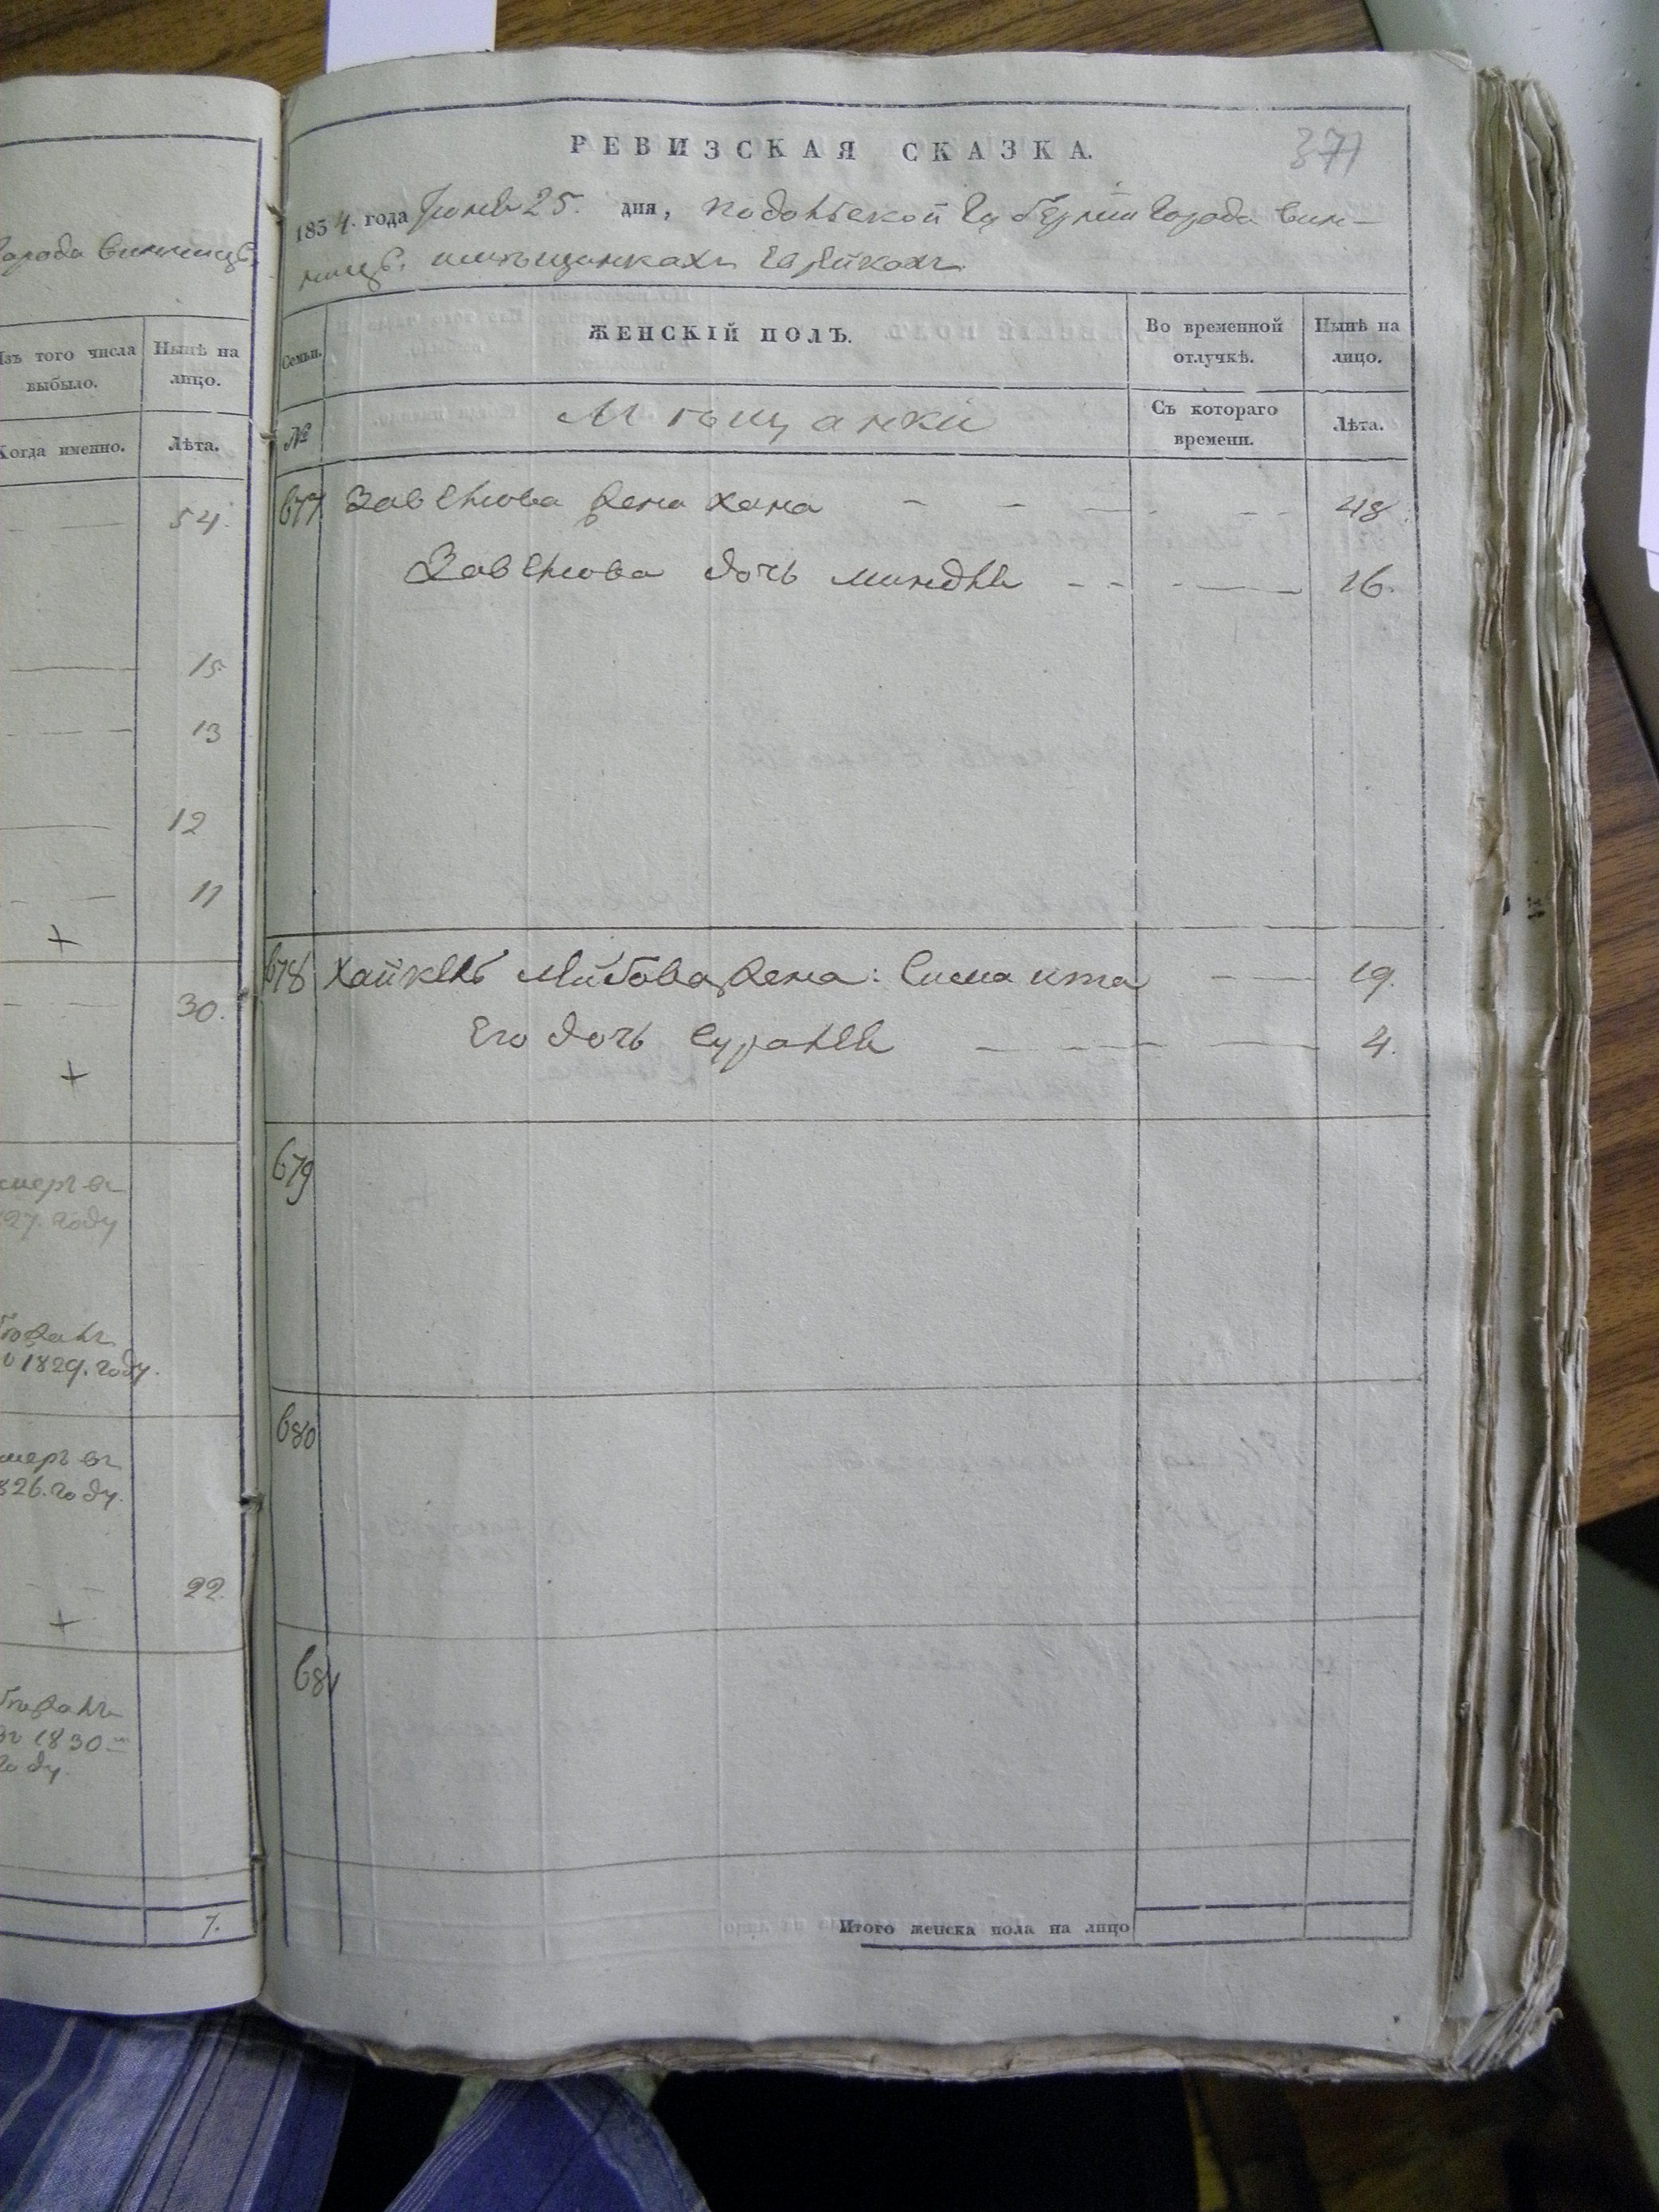 города Винницѣ
Изъ того числа выбыло.
Нынѣ на лицо.
Когда именно.
Лѣта.
54.
15
13
12
11
+
30.
+
умеръ въ
827. году
1829. году.
умеръ въ
826. году.
22.
+
въ 1830
году.
7.
371
РЕВИЗСКАЯ СКАЗКА.
1834. года Іюня 25. дня, Подольской Губерніи Города Вин-
ницѣ. мѣщанкахъ Еврейкахъ
Семьи.
ЖЕНСКІЙ ПОЛЪ.
Во временной отлучкѣ.
Нынѣ на лицо.
№
Мѣщанки
Съ котораго времени.
Лѣта.
677 Завелиова жена Хана 48
Завелиова дочь Миндля 16.
678 Хайкель Лейбова жена: Сима ита 19.
Его дочь Суралея 4.
679
680
681
Итого женска пола на лицо